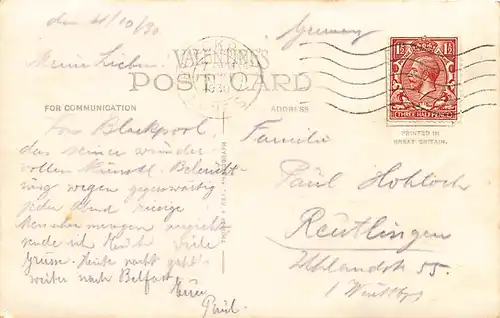 den 21/10/30
Germany
Meine Lieben
VALENTINE'S
POST CARD
FOR COMMUNICATION
ADDRESS
1½ 1½
THREE HALF PENCE
PRINTED IN
GREAT BRITAIN.
1930
Von Blackpool,
das seiner wunder-
vollen Beleucht-
ung wegen gegenwärtig
jeden Abend riesige
Menschenmengen anzieht
sende ich Euch viele
Grüsse. Heute nacht geht's
weiter nach Belfast.
Euer
Paul.
Familie
Paul Hohloch
Reutlingen
Uhlandstr 55.